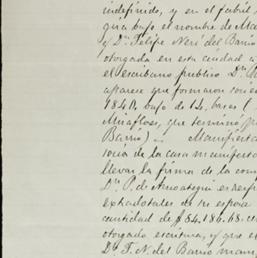 indefinido, y en el
gira bajo el nombre de Ma
y Dn. Felipe Neri del Barrio
otorgada en esta ciudad a
el escribano publico Dn.
aparece que formaron
1848, bajo de 14 bases
Miraflores, que terminó
Barrio) Manifesta
socia de la casa manifesto
llevar la firma de la
Dn. P. de Ansoategui
extradotales de su esposa
cantidad de $84.186.68.
otorgado escritura, y que el
Dn. F. N. del Barrio